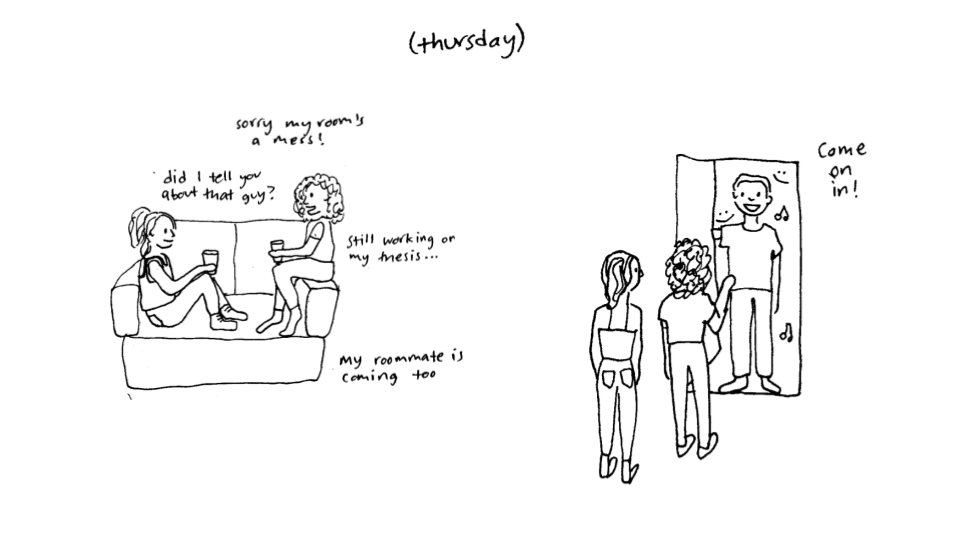 (thursday)
sorry my room's
a mess!
did I tell you
about that guy?
still working on
my thesis...
my roommate is
coming too
Come
on
in!